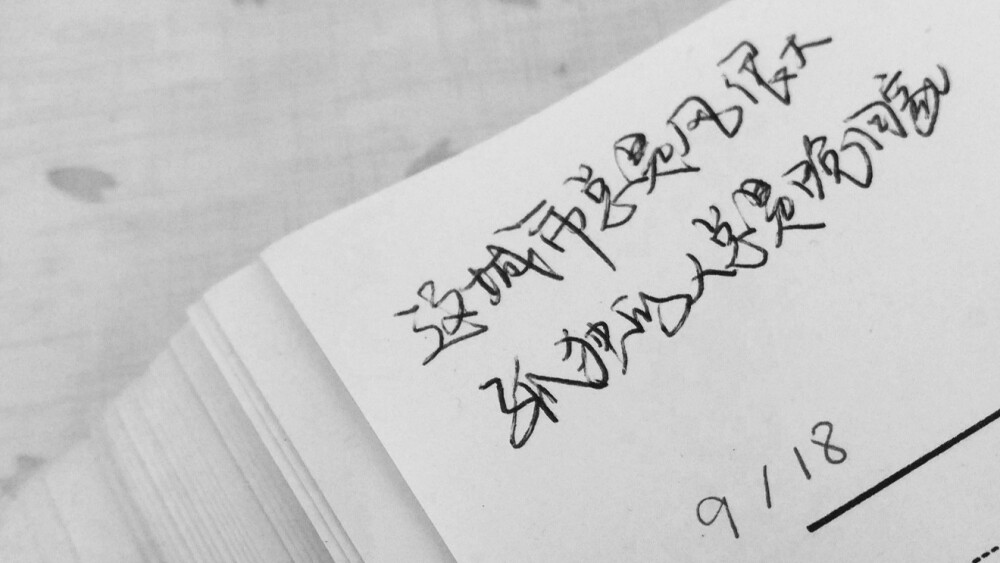 这城市总是风很大
孤独的人总是晚回家
9/18